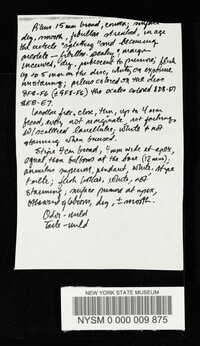 Pileus 15 mm broad, convex; surface
dry, smooth, fibrillose streaked, in age
the cuticle splitting and becoming
areolate in places. scaly; margin
incurved, dry, flesh
up to 5 mm on the disc, white, on exposure
unchanging; pileus colored on the disc
the scales colored
8E8-E7.
Lamellae free, close, thin, up to 4 mm
broad, even, not marginate, not forking,
w/scattered lamellulae, white & not
staining when bruised.
Stipe 4 cm broad, 4 mm wide at apex,
equal then bulbous at the base (12 mm);
annulus superous, pendant, white, stipe
white, not
staining; surface at apex,
otherwise glabrous, dry, ± smooth.
Odor - mild
Taste - mild
NEW YORK STATE MUSEUM
NYSM 0 000 009 875